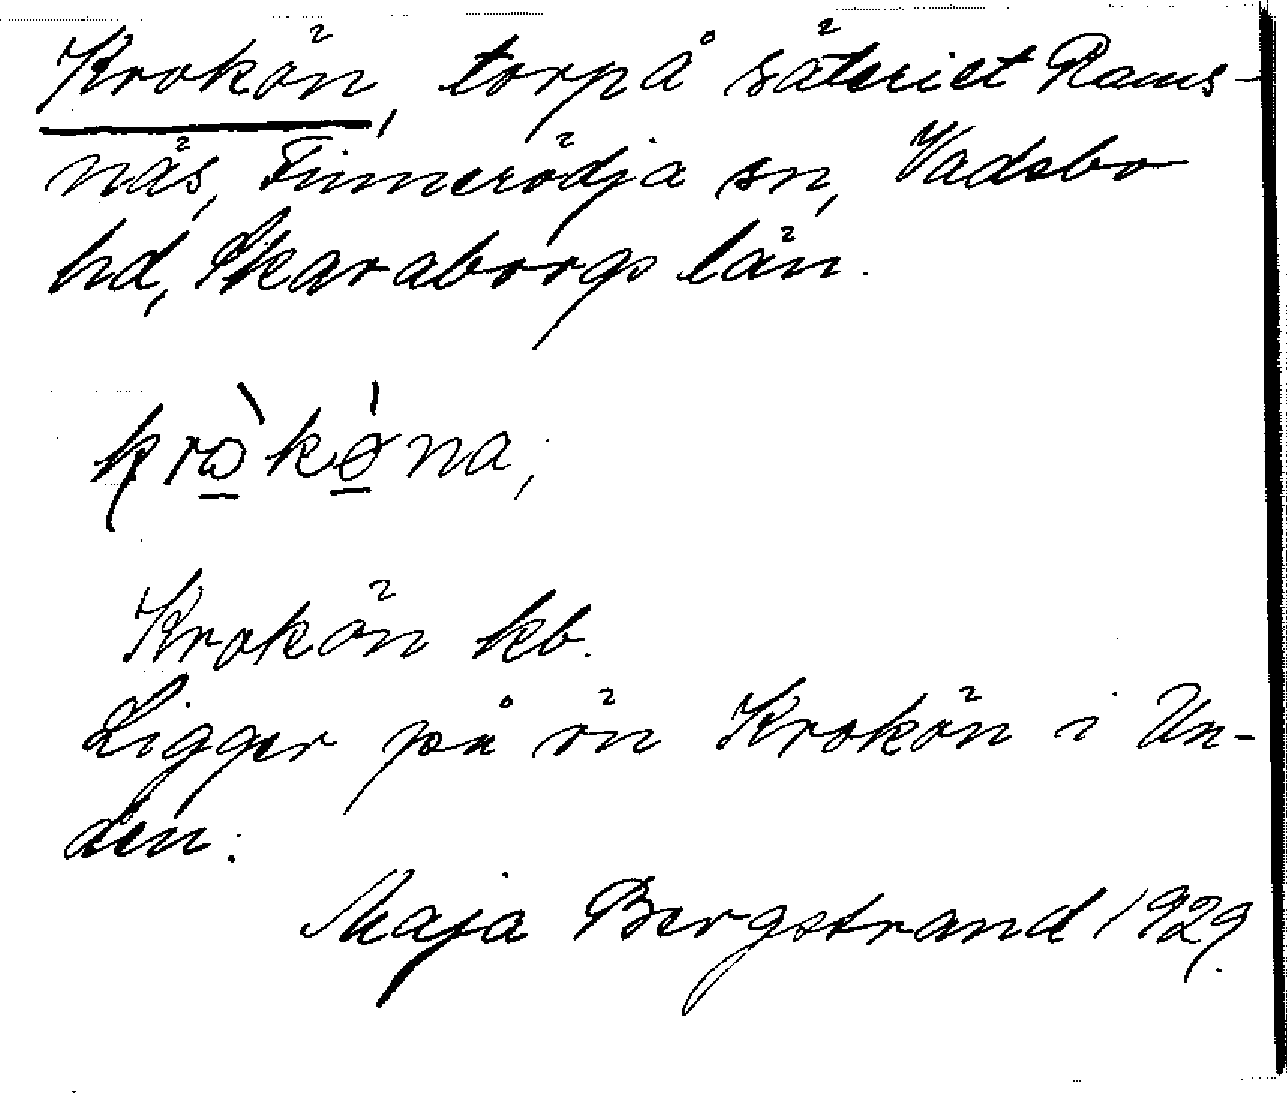 Krokön, torp å säteriet Rams-
näs, Finnerödja sn, Vadsbo
hd, Skaraborgs län.
krò̱kǿ̱na;
Krokön kb.
Ligger på ön Krokön i Un-
den.
Maja Bergstrand 1929.